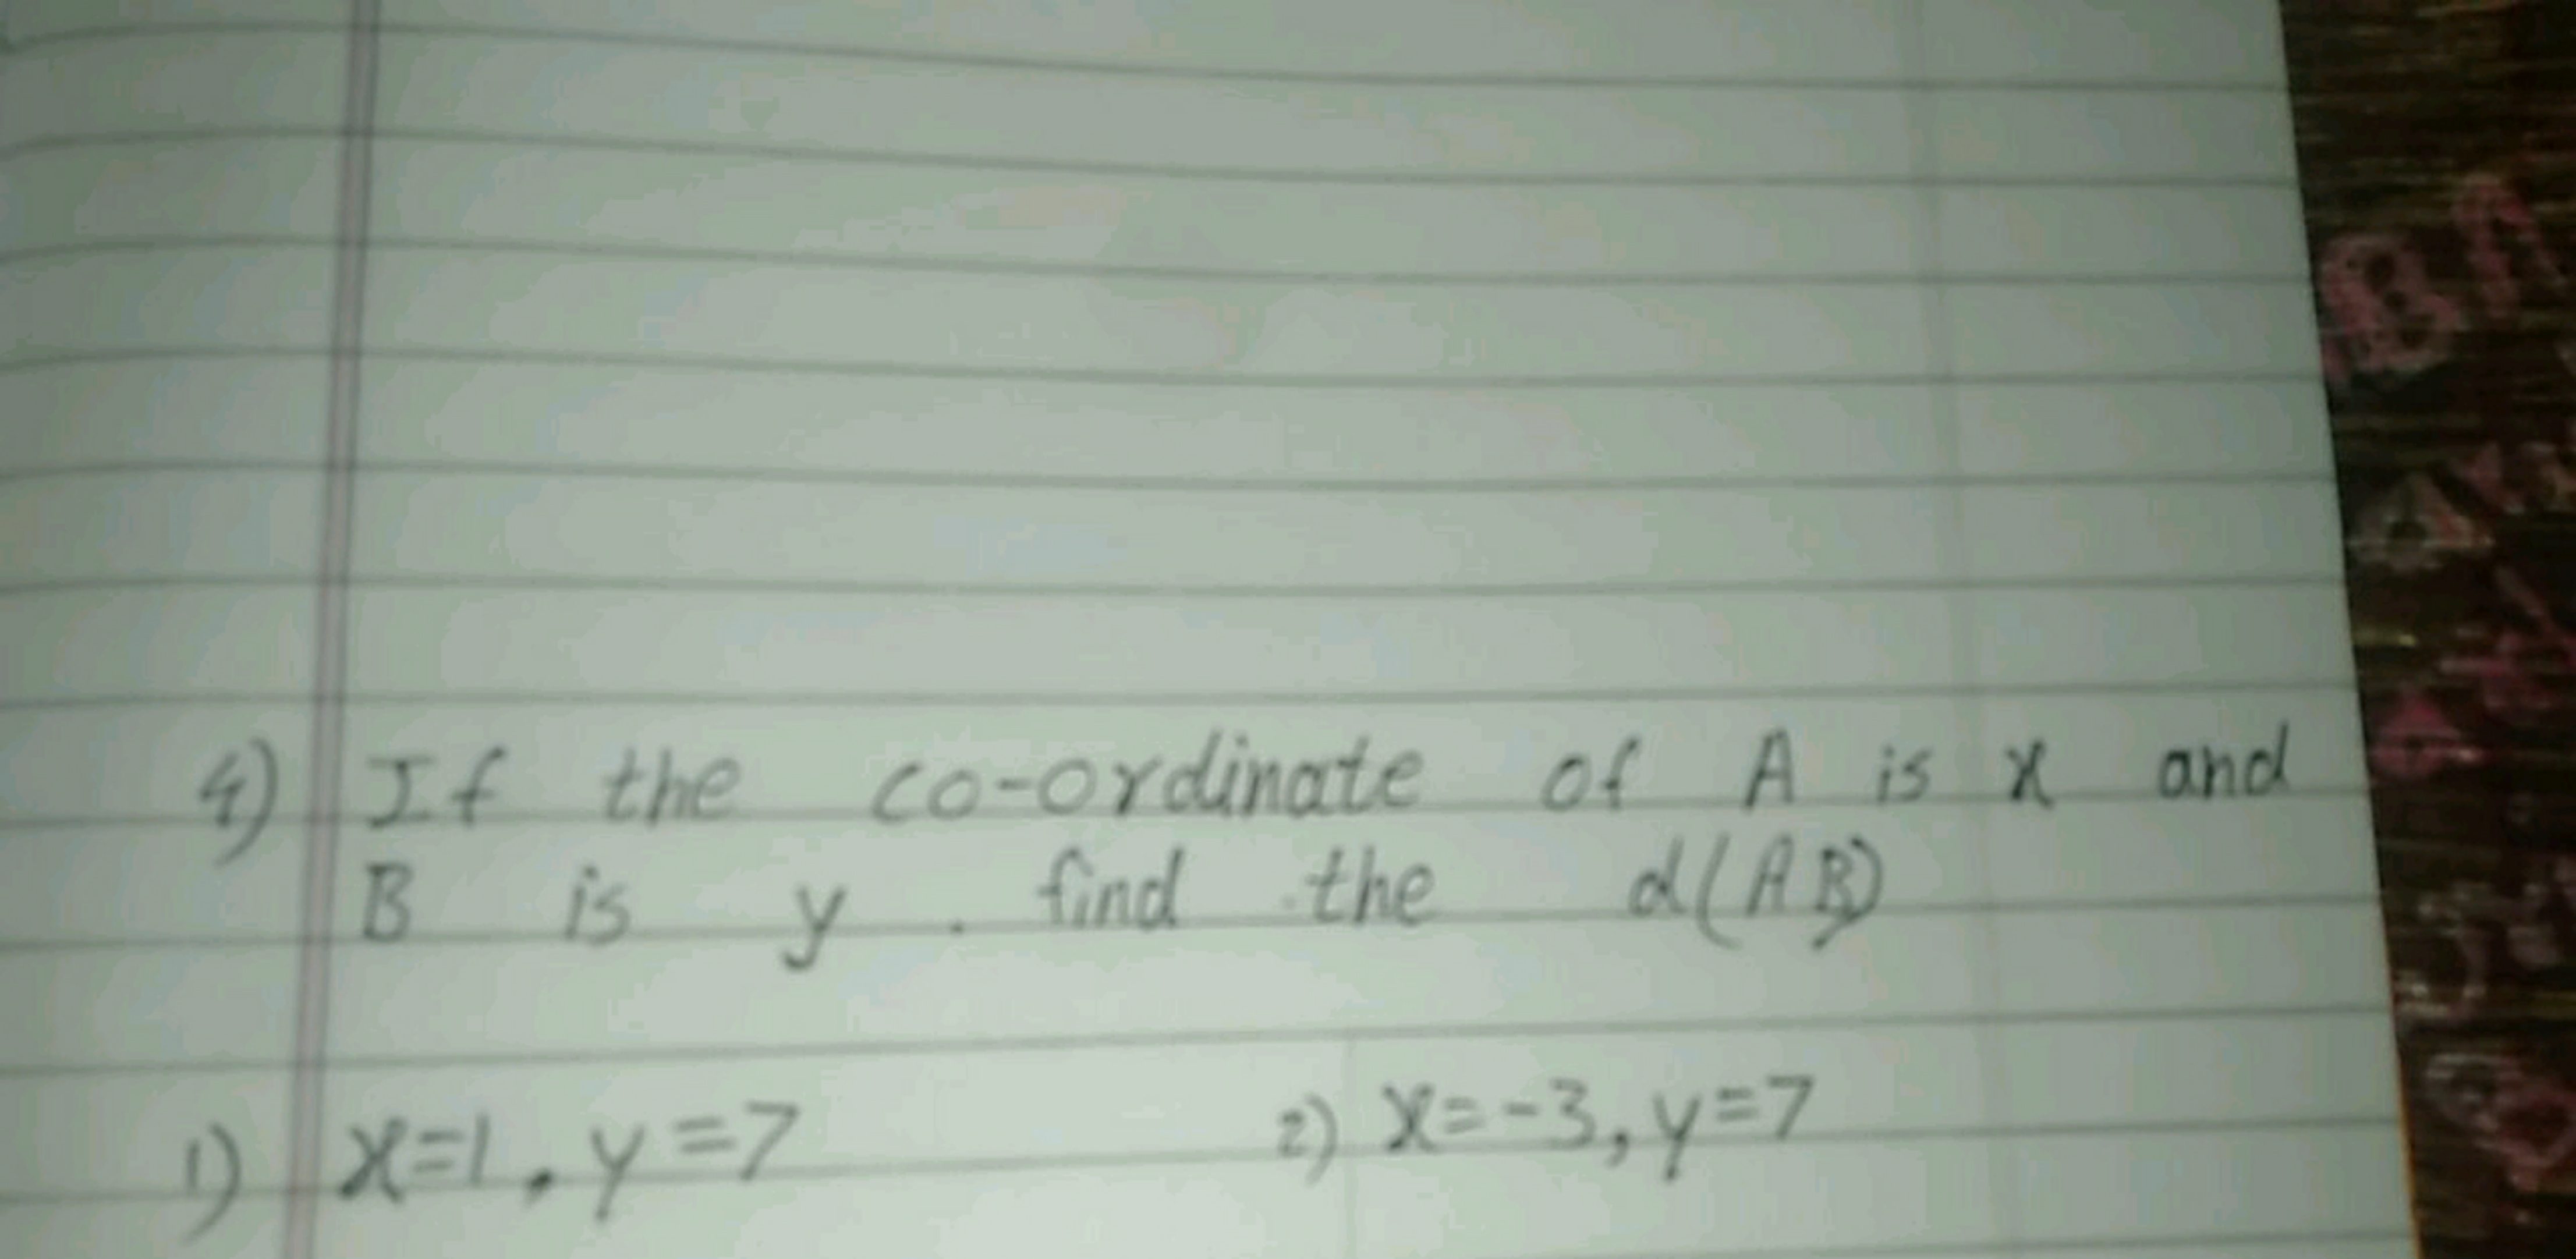 4) If the co-ordinate of A is x and
B is y . find the d(AB)
1) x=1, y=7 2) x=-3, y=7